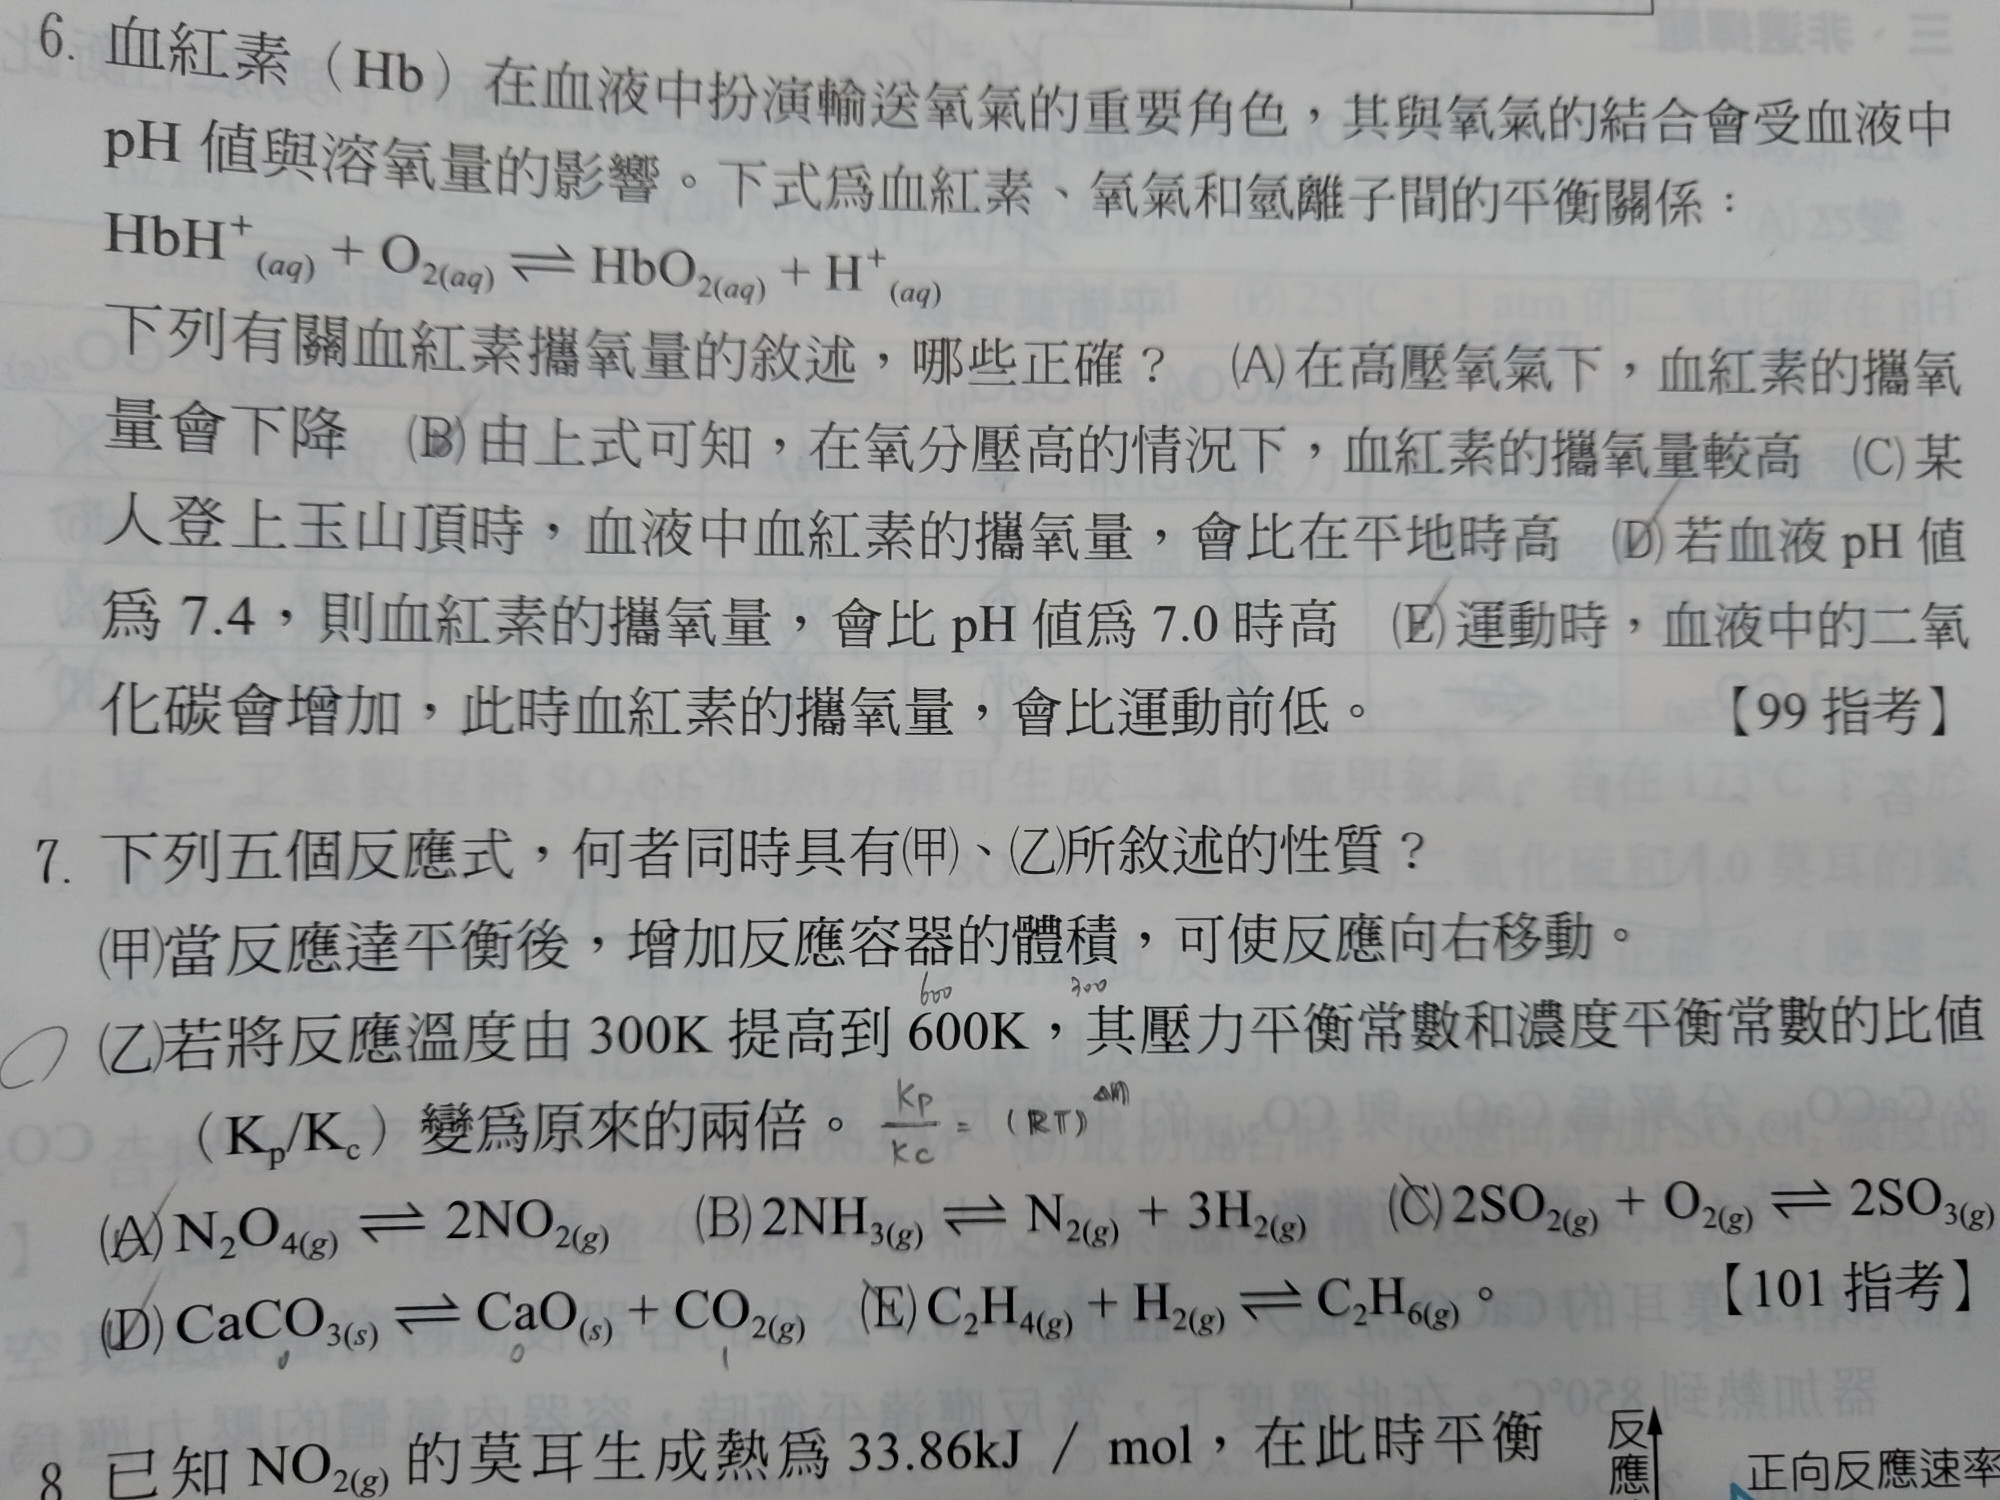 6. 血紅素（Hb）在血液中扮演輸送氧氣的重要角色，其與氧氣的結合會受血液中
pH 值與溶氧量的影響。下式爲血紅素、氧氣和氫離子間的平衡關係：
HbH⁺(aq) + O₂(aq) ⇌ HbO₂(aq) + H⁺(aq)
下列有關血紅素攜氧量的敘述，哪些正確？ (A)在高壓氧氣下，血紅素的攜氧
量會下降 (B)由上式可知，在氧分壓高的情況下，血紅素的攜氧量較高 (C)某
人登上玉山頂時，血液中血紅素的攜氧量，會比在平地時高 (D)若血液 pH 值
爲 7.4，則血紅素的攜氧量，會比 pH 值爲 7.0 時高 (E)運動時，血液中的二氧
化碳會增加，此時血紅素的攜氧量，會比運動前低。 【99 指考】
7. 下列五個反應式，何者同時具有(甲)、(乙)所敘述的性質？
(甲)當反應達平衡後，增加反應容器的體積，可使反應向右移動。
600 300
(乙)若將反應溫度由 300K 提高到 600K，其壓力平衡常數和濃度平衡常數的比值
（Kp/Kc）變爲原來的兩倍。 Kp/Kc = (RT)^Δn
(A) N₂O₄(g) ⇌ 2NO₂(g) (B) 2NH₃(g) ⇌ N₂(g) + 3H₂(g) (C) 2SO₂(g) + O₂(g) ⇌ 2SO₃(g)
(D) CaCO₃(s) ⇌ CaO(s) + CO₂(g) (E) C₂H₄(g) + H₂(g) ⇌ C₂H₆(g)。 【101 指考】
0 0 1
8 已知 NO₂(g) 的莫耳生成熱爲 33.86kJ / mol，在此時平衡
反應
正向反應速率